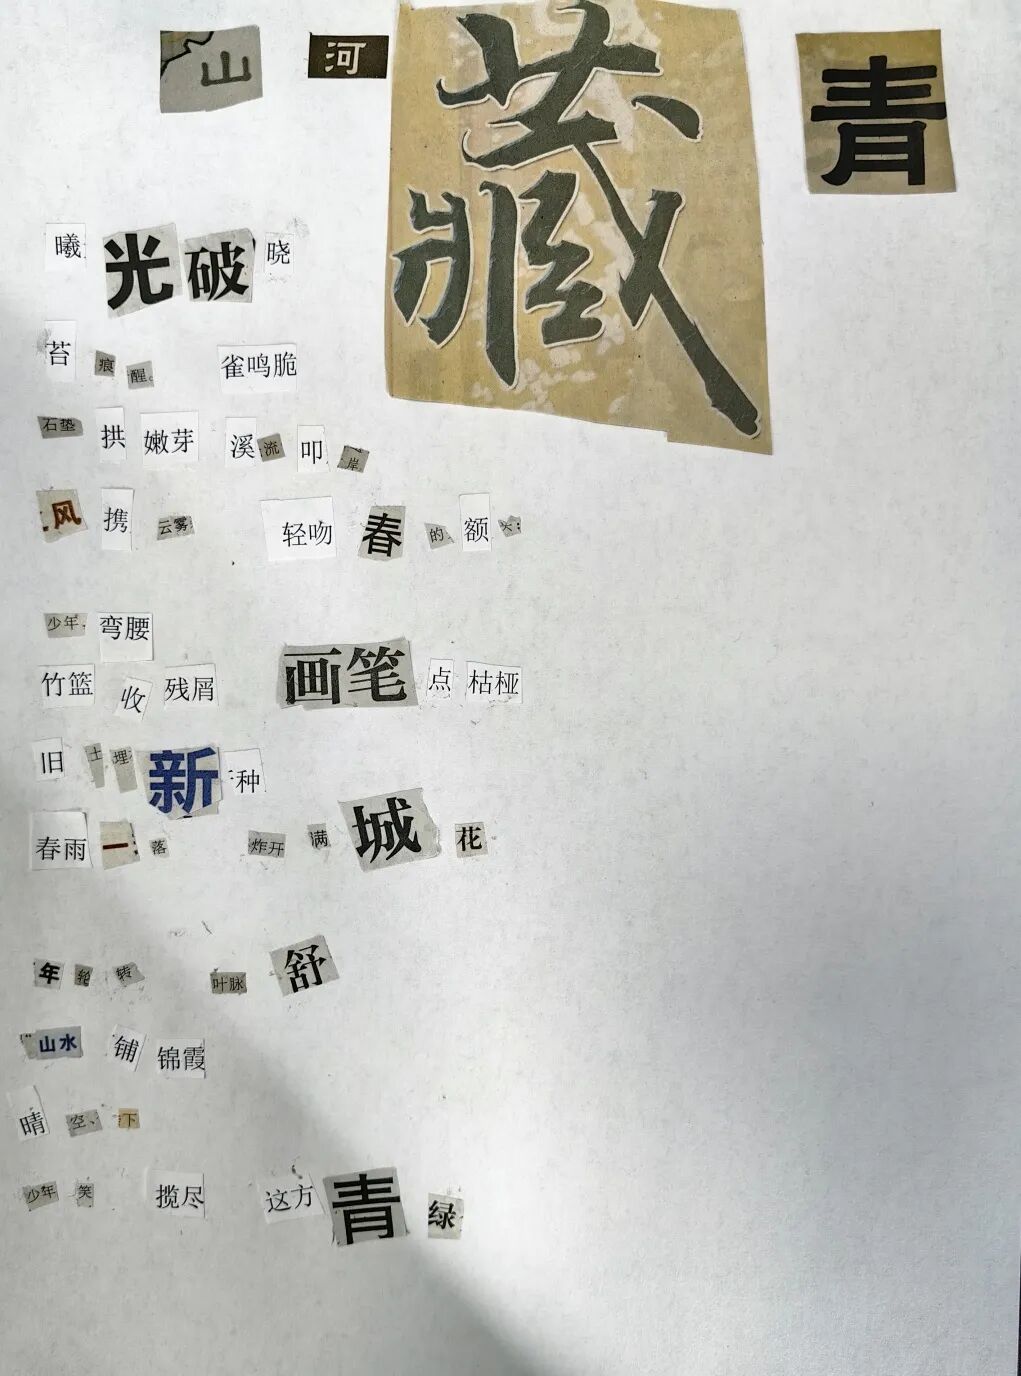 山河藏青
曦光破晓
苔痕醒。 雀鸣脆
石垫拱嫩芽 溪流叩岸
风携云雾 轻吻春的额头;
少年弯腰
竹篮收残屑 画笔点枯桠
旧土埋新种
春雨一落 炸开满城花
年轮转 叶脉舒
山水铺锦霞
晴空、下
少年笑 揽尽 这方青绿